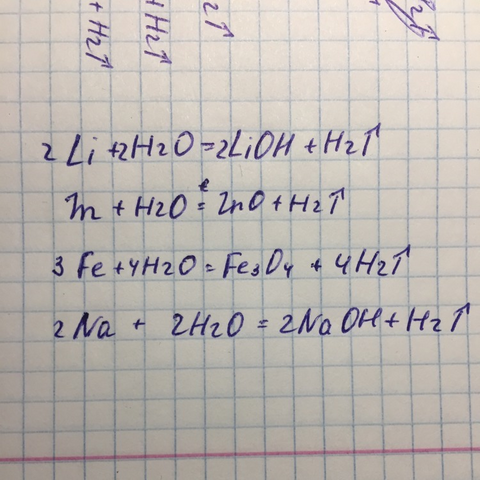 + H2↑
+ H2↑
2↑
2 Li + 2H2O = 2LiOH + H2↑
Zn + H2O =t ZnO + H2↑
3 Fe + 4H2O = Fe3O4 + 4H2↑
2Na + 2H2O = 2NaOH + H2↑